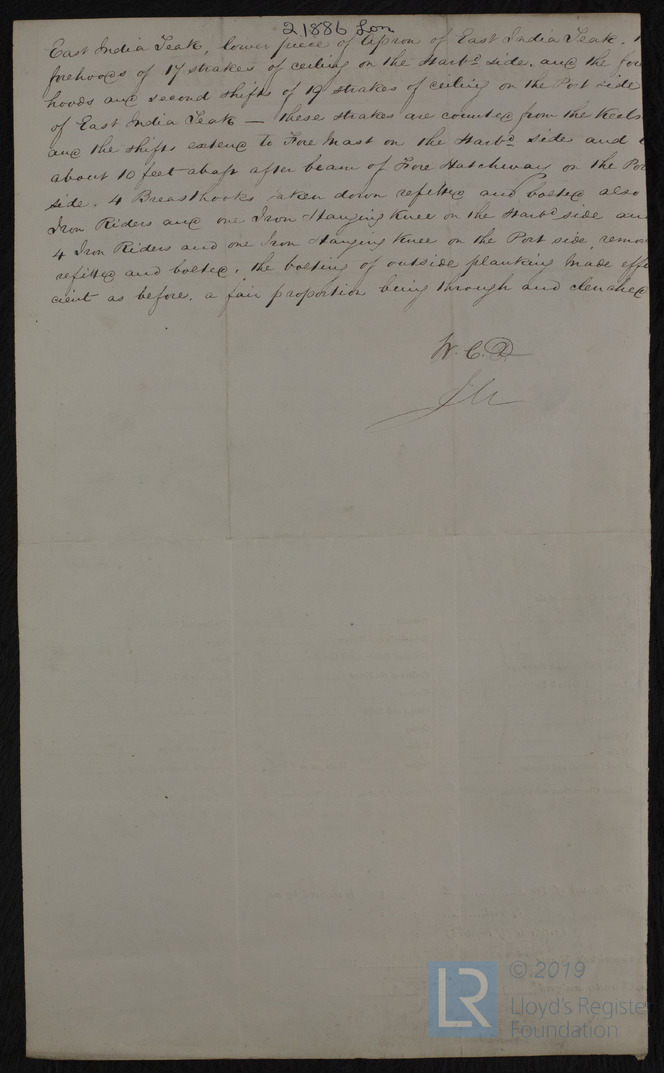 21886 Lon
East India Teak, lower piece of Apron of East India Teak.
forehoods of 17 strakes of ceiling on the Starbd side, and the fore
hoods and second shifts of 19 strakes of ceiling on the Port side
of East India Teak — these strakes are counted from the Keels
and the shifts extend to Fore Mast on the Starbd side and
about 10 feet abaft after beam of Fore Hatchway on the Por
side. 4 Breasthooks taken down refitted and bolted also
Iron Riders and one Iron Hanging Knee on the Starbd side and
4 Iron Riders and one Iron Hanging Knee on the Port side, remov
refitted and bolted, the bolting of outside planking made effi
cient as before, a fair proportion being through and clenched
W. C. D
LR © 2019
Lloyd's Register
Foundation